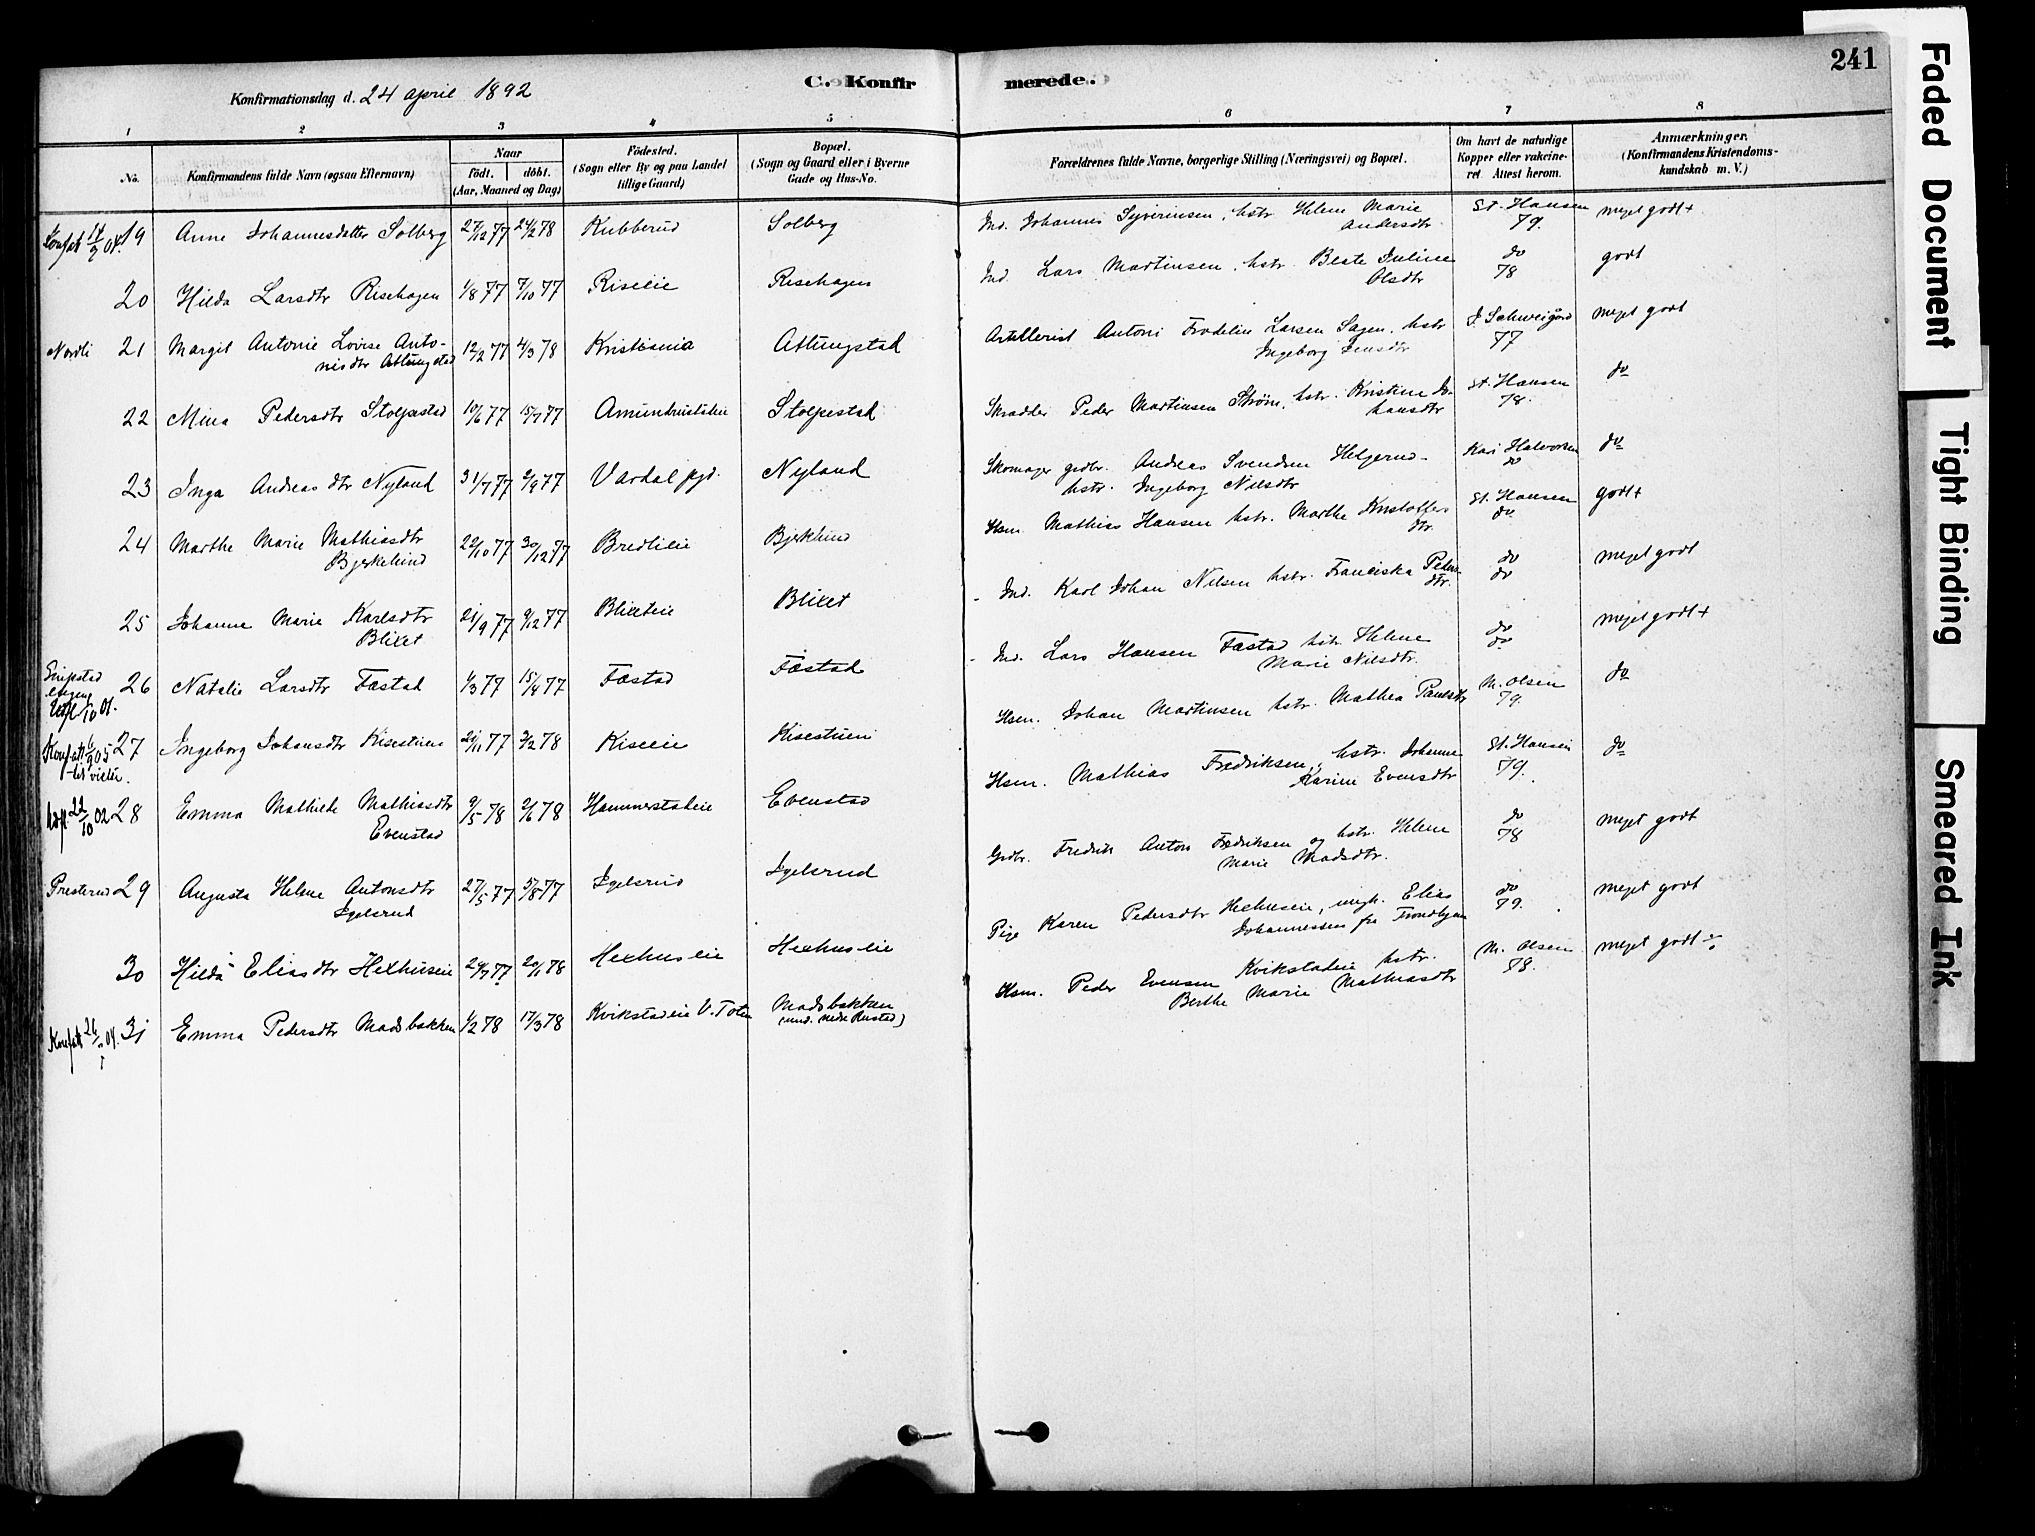 241
Konfirmationsdag d. 24 april 1892
C. Konfirmerede.
1 2 3 4 5 6 7 8
No.
Konfirmandens fulde Navn (ogsaa Efternavn)
Naar
födt. döbt.
(Aar, Maaned og Dag)
Födested.
(Sogn eller By og paa Landet
tillige Gaard)
Bopæl.
(Sogn og Gaard eller i Byerne
Gade og Hus-No.
Forældrenes fulde Navne, borgerlige Stilling (Næringsvei) og Bopæl.
Om havt de naturlige
Kopper eller vakcine-
ret Attest herom.
Anmærkninger.
(Konfirmandens Kristendoms-
kundskab m. V.)
19 Anne Johannesdatter Solberg 27/12 77 24/2 78 Kubberud Solberg Ind. Johannes Syverinsen, hstr. Helene Marie St. Hansen meget godt+
Andersdtr. 79.
20 Hilda Larsdtr Risehagen 1/8 77 7/10 77 Riseeie Risehagen Ind. Lars Martinsen, hstr. Beate Juline do godt
Olsdtr 78
Nordli 21 Margit Antonie Lovise Anto- 12/2 77 4/3 78 Kristiania Attungstad Artillerist Antoni Fredelin Larsen Sagen. hstr J. Schweigård meget godt
nisdtr Attungstad Ingeborg Jensdtr 77
22 Mina Pedersdtr Stolpestad 10/6 77 15/7 77 Amundrudseie Stolpestad Skrædder Peder Martinsen Strøm, hstr. Kristine Jo- St. Hansen do
hansdtr 78.
23 Inga Andreasdtr Nyland 31/7 77 9/9 77 Vardal pgd. Nyland Skomager grdbr. Andreas Svendsen Helgerud- Kari Halvorsen do
hstr. Ingeborg Nilsdtr do
24 Marthe Marie Mathiasdtr 22/10 77 30/12 77 Bredlieie Bjerkelund Hsm. Mathias Hansen hstr. Marthe Kristoffers St. Hansen godt+
Bjerkelund dtr. do
25 Johanne Marie Karlsdtr 21/9 77 9/12 77 Blixeteie Blixet Ind. Karl Johan Nilsen hstr. Franciska Peders do meget godt
Blixet dtr. do
26 Natalie Larsdtr Fæstad 4/3 77 15/4 77 Fæstad Fæstad Ind. Lars Hansen Fæstad hstr. Helene do meget godt+
Marie Nilsdtr. do
27 Ingeborg Johansdtr Kisestuen 21/11 77 3/2 78 Kiseeie Kisestuen Hsm. Johan Martinsen hstr. Mathea Paulsdtr M. Olsen do
79.
28 Emma Mathilde Mathiasdtr 9/5 78 2/6 78 Hammerstadeie Evenstad Hsm. Mathias Fredriksen, hstr. Johanne St. Hansen do
Evenstad Karine Evensdtr 79.
Presterud 29 Augusta Helene Antonsdtr 27/5 77 5/8 77 Igelsrud Igelsrud Grdbr. Fredrik Anton Fredriksen og hstr. Helene do meget godt
Igelsrud Marie Madsdtr. 78
30 Hilda Eliasdtr Hexhuseie 24/7 77 20/1 78 Hexhuseie Hexhuseie Pige Karen Pedersdtr Hexhuseie, ungk. Elias do meget godt
Johannessen fra Trondhjem 79.
31 Emma Pedersdtr Madsbakken 1/2 78 17/3 78 Kvikstadeie V. Toten Madsbakken Hsm. Peder Evensen Kvikstadeie hstr. M. Olsen meget godt
(und. nedre Rustad) Berthe Marie Mathiasdtr 78.
Faded Document
Tight Binding
Smeared Ink